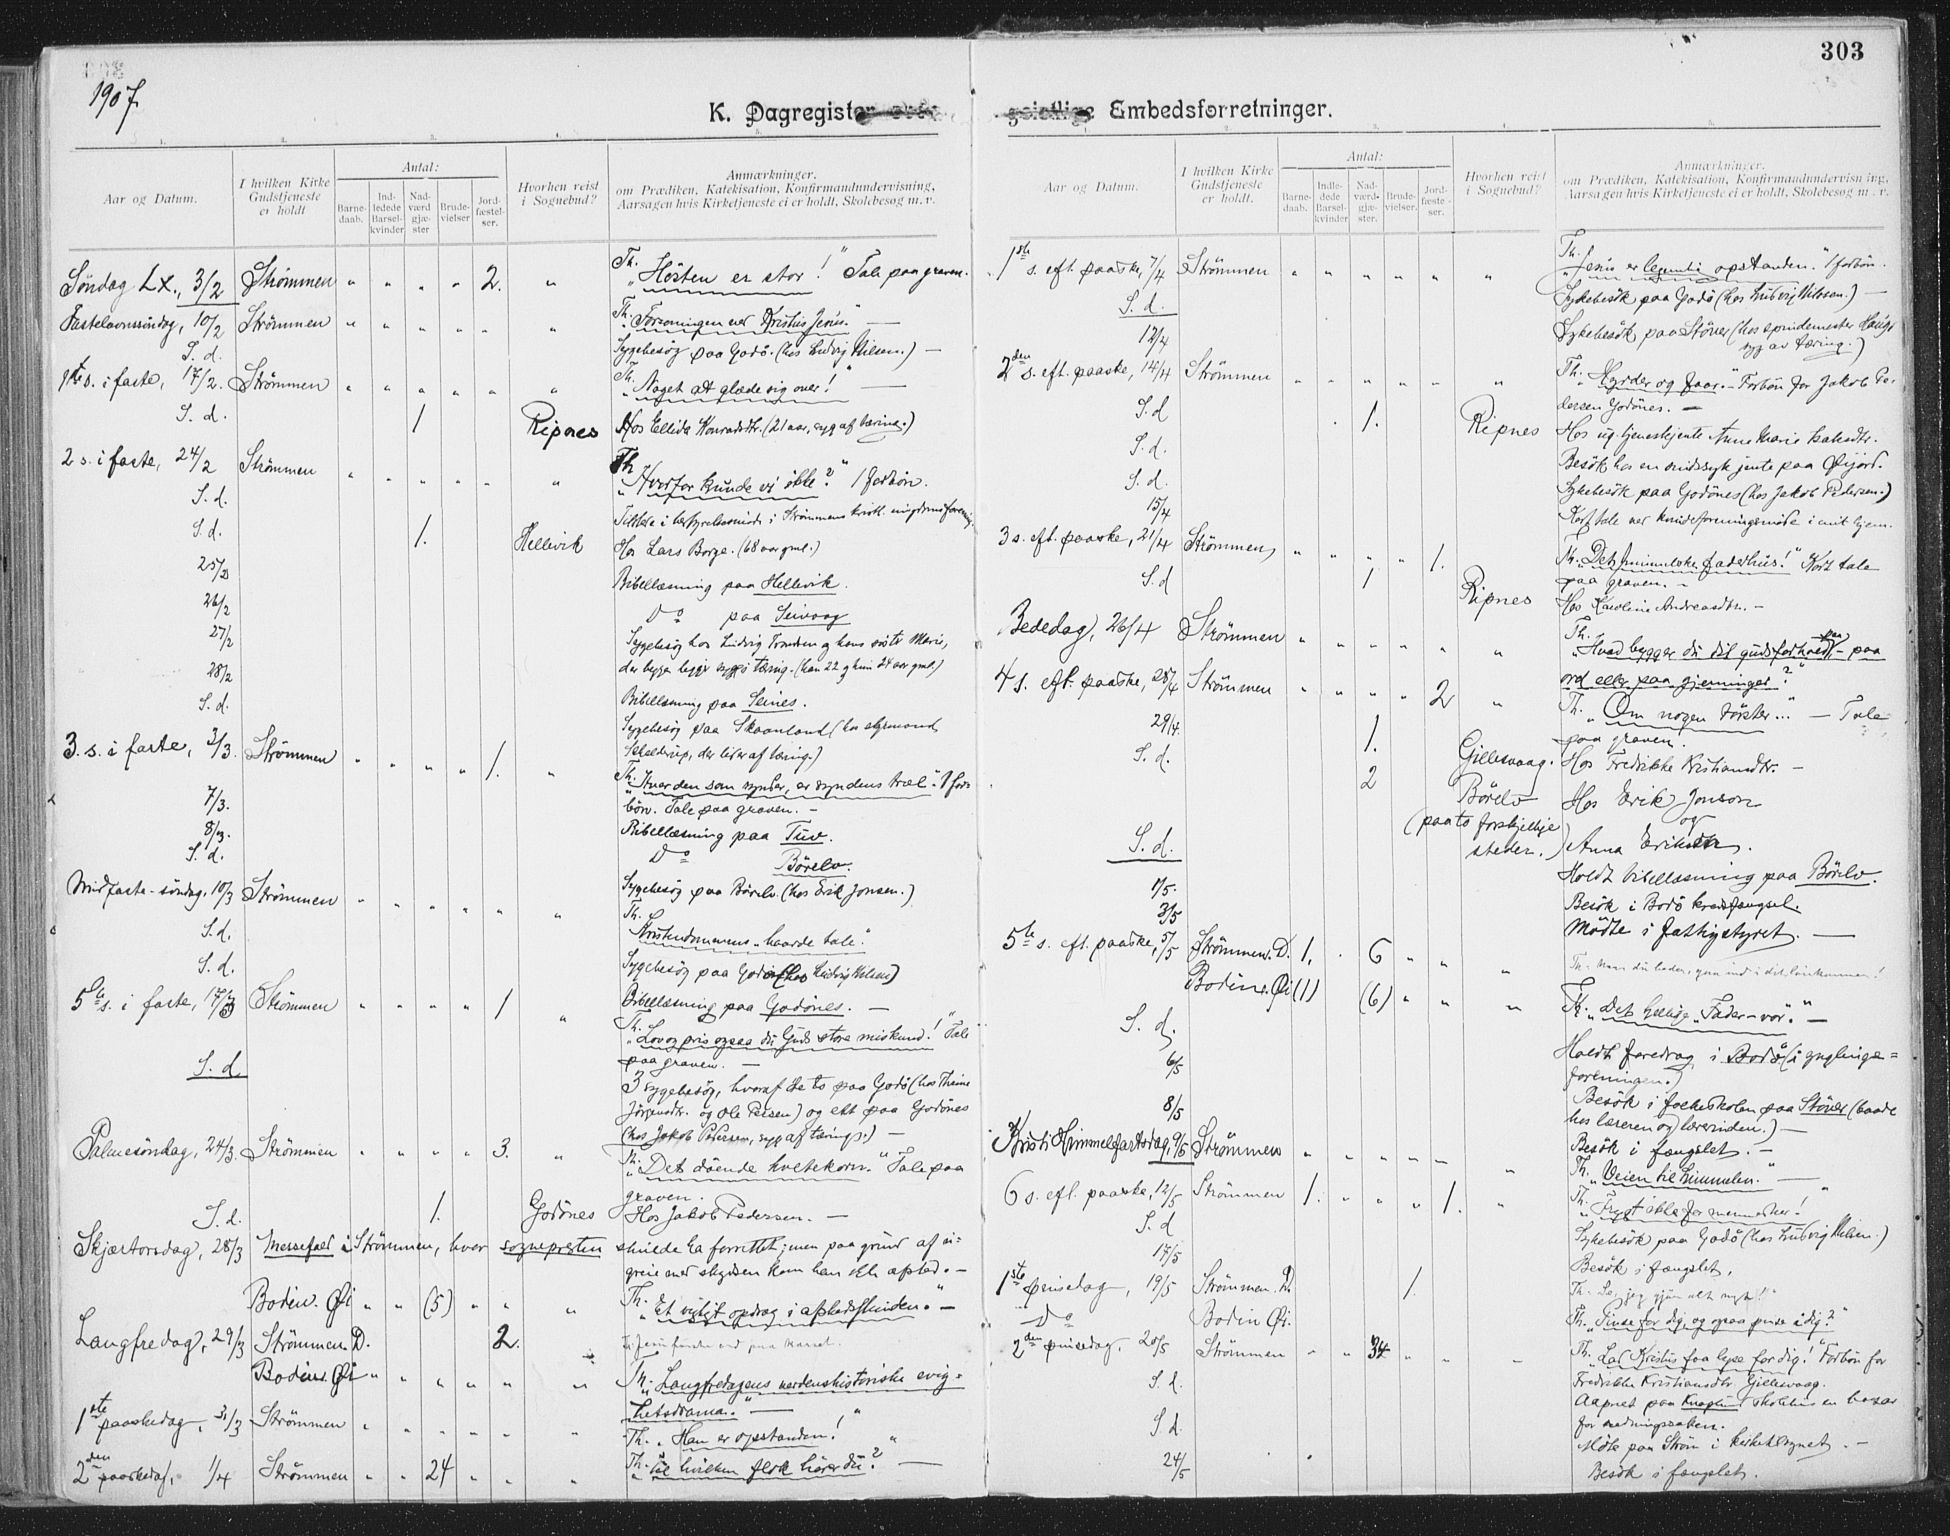 303
1907
K. Dagregister
geistlige Embedsforretninger.
Aar og Datum.
I hvilken Kirke Gudstjeneste er holdt
Antal:
Barne-daab.
Ind-ledede Barsel-kvinder
Nad-værd gjæ-ster
Brude-vielser
Jord-fæstel-ser.
Hvorhen reist i Sognebud?
Anmærkninger.
om Prædiken, Katekisation, Konfirmandundervisning,
Aarsagen hvis Kirketjeneste ei er holdt, Skolebesøg m. v.
Søndag LX., 3/2 Strömmen " " " " 2. " Th. "Hösten er stor!" Tale paa graven.
Fastelavnssöndag, 10/2 Strömmen " " " " " " Th. "Forsoningen ved Kristus Jesus." —
S. d. Sygebesøg paa Godö. (hos Ludvig Nilsen.) —
1ste s. i faste, 17/2. Strömmen " " " " " " Th. "Noget at glæde sig over!" —
S. d. 1 Ripnes Hos Ellida Konradsdtr. (21 aar, syg af tæring.)
2 s. i faste, 24/2 Strömmen " " " " " " Th. "Hvorfor kunde vi ikke?" 1 forbön.
S. d. Tilstede i bestyrelsesmöde i Strömmens kristl. ungdomsforening.
S. d. 1. Hellevik Hos Lars Borge. (68 aar gml.)
25/2 Bibellæsning paa Hellevik.
26/2 Do paa Seivaag
27/2 Sygebesøg hos Ludvig Tronsen og hans söster Marie,
der begge ligger syge i tæring. (han 22 og hun 24 aar gml.)
28/2 Bibellæsning paa Seines.
S. d. Sygebesøg paa Skaanland (hos
Schelderup, der lider af tæring.)
3. s. i faste, 3/3. Strömmen " " " " 1. " Th. "Hver den som synder, er syndens træl". 1 for-
bön. Tale paa graven. —
7/3. Bibellæsning paa Tuv.
8/3. Do Börelv.
S. d. Sygebesøg paa Börelv. (hos Erik Jonsen.)
Midfaste-söndag, 10/3 Strömmen " " " " " " Th. "Kristendommens "haarde tale"."
S. d. Sygebesøg paa Godö (hos Ludvig Nilsen)
S. d. Bibellæsning paa Godönes. —
5te s. i faste, 17/3 Strömmen " " " " 1 " Th. "Lov og pris ogsaa du Guds store miskund!" Tale
paa graven. —
S. d. 3 sygebesøg, hvoraf de to paa Godö (hos Trine
Jörgensdtr. og Ole Persen) og ett paa Godönes
(hos Jakob Pedersen, syg af tæring.) —
Palmesöndag, 24/3. Strömmen " " " " 3. " Th. "Det döende hvetekorn." Tale paa
graven.
S. d. 1. Godönes Hos Jakob Pedersen. —
Skjærtorsdag, 28/3 Messefald i Strömmen, hvor sognepresten skulde ha forrettet; men paa grund af u-
greie med skydsen kom han ikke afsted. —
Bodin. Öi " " (5) " " " Th. "Et vigtigt opdrag i afskedsstunden." —
Langfredag, 29/3 Strömmen. D. 2.
Bodin. Öi " " " " " " Th. "Langfredagens verdenshistoriske evig-
hetsdrama." —
1ste paaskedag, 31/3 Strömmen " " " " " " Th. "Han er opstanden!"
2den paaskedag, 1/4 Strömmen " " 24 " " " Th. "Til hvilken flok hörer du?" —
Aar og Datum.
I hvilken Kirke Gudstjeneste er holdt.
Antal:
Barne-daab.
Indle-dede Barsel-kvinder
Nad-værd-gjæ-ster.
Brude-vielser.
Jord-fæste-ser.
Hvorhen reist i Sognebud?
Anmærkninger.
om Prædiken, Katekisation, Konfirmandundervisning,
Aarsagen hvis Kirketjeneste ei er holdt, Skolebesøg m. v.
1ste s. eft. paaske, 7/4 Strömmen " " " " " " Th. "Jesus er legemlig opstanden." 1 forbön.
S. d. Sykebesök paa Godö (hos Ludvig Nilssen.) —
12/4 Sykebesök paa Stöver (hos
syg av tæring.)
2den s. eft. paaske, 14/4 Strömmen " " " " " " Th. "Hyrder og faar." — Forbön for Jakob Pe-
dersen Godönes. —
S. d 1. Ripnes Hos ug. tjenestjente Anne Marie Isaksdtr.
S. d. Besök hos en sindssyk jente paa Öijord.
S. d. Sykebesök paa Godönes (hos Jakob Pedersen.)
15/4 Kort tale ved kvindeforeningsmöte i mit hjem.
3 s. eft. paaske, 21/4 Strömmen " " " " 1. Th. "Det himmelske faderhus!" Kort tale
paa graven. —
S. d 1 Ripnes Hos Karoline Andreasdtr. —
Bededag, 26/4 Strömmen " " " " " " Th. "Hvad bygger du dit gudsforhold paa, — paa
ord eller paa gjerninger?"
4 s. eft. paaske, 28/4 Strömmen " " " " 2 " Th. "Om nogen törster..." — Tale
paa graven.
29/4. 1. Gillesvaag. Hos Fredrikke Kristiansdtr. —
S. d. 2 Börelv Hos Erik Jonson
(paa to forskjellige steder.) og
Anna Eriksdtr.
S. d. Holdt bibellæsning paa Börelv.
1/5. Besök i Bodö kredsfængsel.
3/5 Mödte i fattigstyret. —
5te s. eft. paaske, 5/5 Strömmen. D. 1. . 6 " " " Th. Naar du beder, gaa ind i dit lönkammer!
Bodin. Öi (1) (6) " " " Th. "Det hellige "Fader-vor"." —
S. d. Holdt foredrag i Bodö (i ynglinge-
foreningen.)
6/5 Besök i folkeskolen paa Stöver (baade
hos læreren og lærerinden.) —
8/5 Besök i fængslet. —
Kristi Himmelfartsdag, 9/5 Strömmen " " " " " " Th. "Veien til himmelen." —
6 s. eft. paaske, 12/5 Strömmen 1. " " " 1. " Th. "Frygt ikke for mennesker!"
S. d Sykebesök paa Godö (hos Ludvig Nilsen.)
17/5 Besök i fængslet.
1ste pinsedag, 19/5 Strömmen. D. 1. Th. Se, jeg gjör alt nyt!"
Do Bodin Öi. Th. "Pinse for dig, og ogsaa pinse i dig?"
2den pinsedag, 20/5 Strömmen " " 34 " " " Th. "Lad Kristus faa for dig!" Forbön for
Fredrikke Kristiansdtr Gillesvaag.
S. d. Aapnet paa skolehus en basar
for redningssaken.
S. d. Möte paa Ström i kirketilsynet. —
24/5 Besök i fængslet.